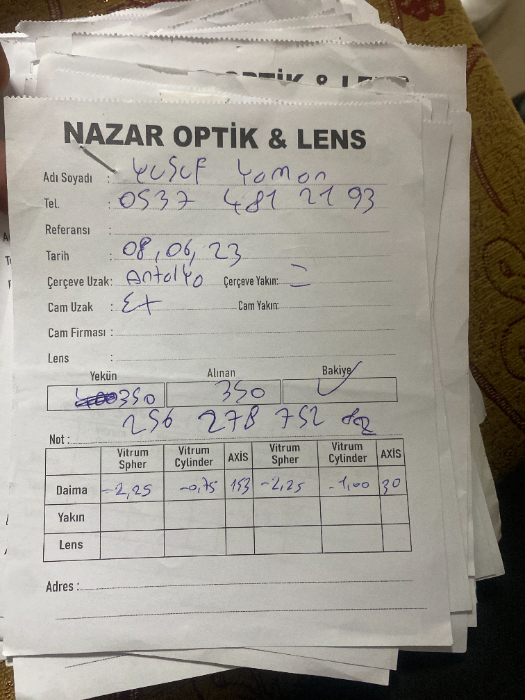 OPTİK & LENS
NAZAR OPTİK & LENS
Adı Soyadı : Yusuf Yaman
Tel. : 0537 481 21 93
Referansı :
Tarih : 08,06,23
Çerçeve Uzak: Antalya Çerçeve Yakın: =
Cam Uzak : Ex Cam Yakın:
Cam Firması :
Lens :
Yekün Alınan Bakiye
350 350 ✓
256 278 752
Not :
Vitrum Spher Vitrum Cylinder AXİS Vitrum Spher Vitrum Cylinder AXİS
Daima -2,25 -0,75 153 -2,25 -1,00 30
Yakın
Lens
Adres :